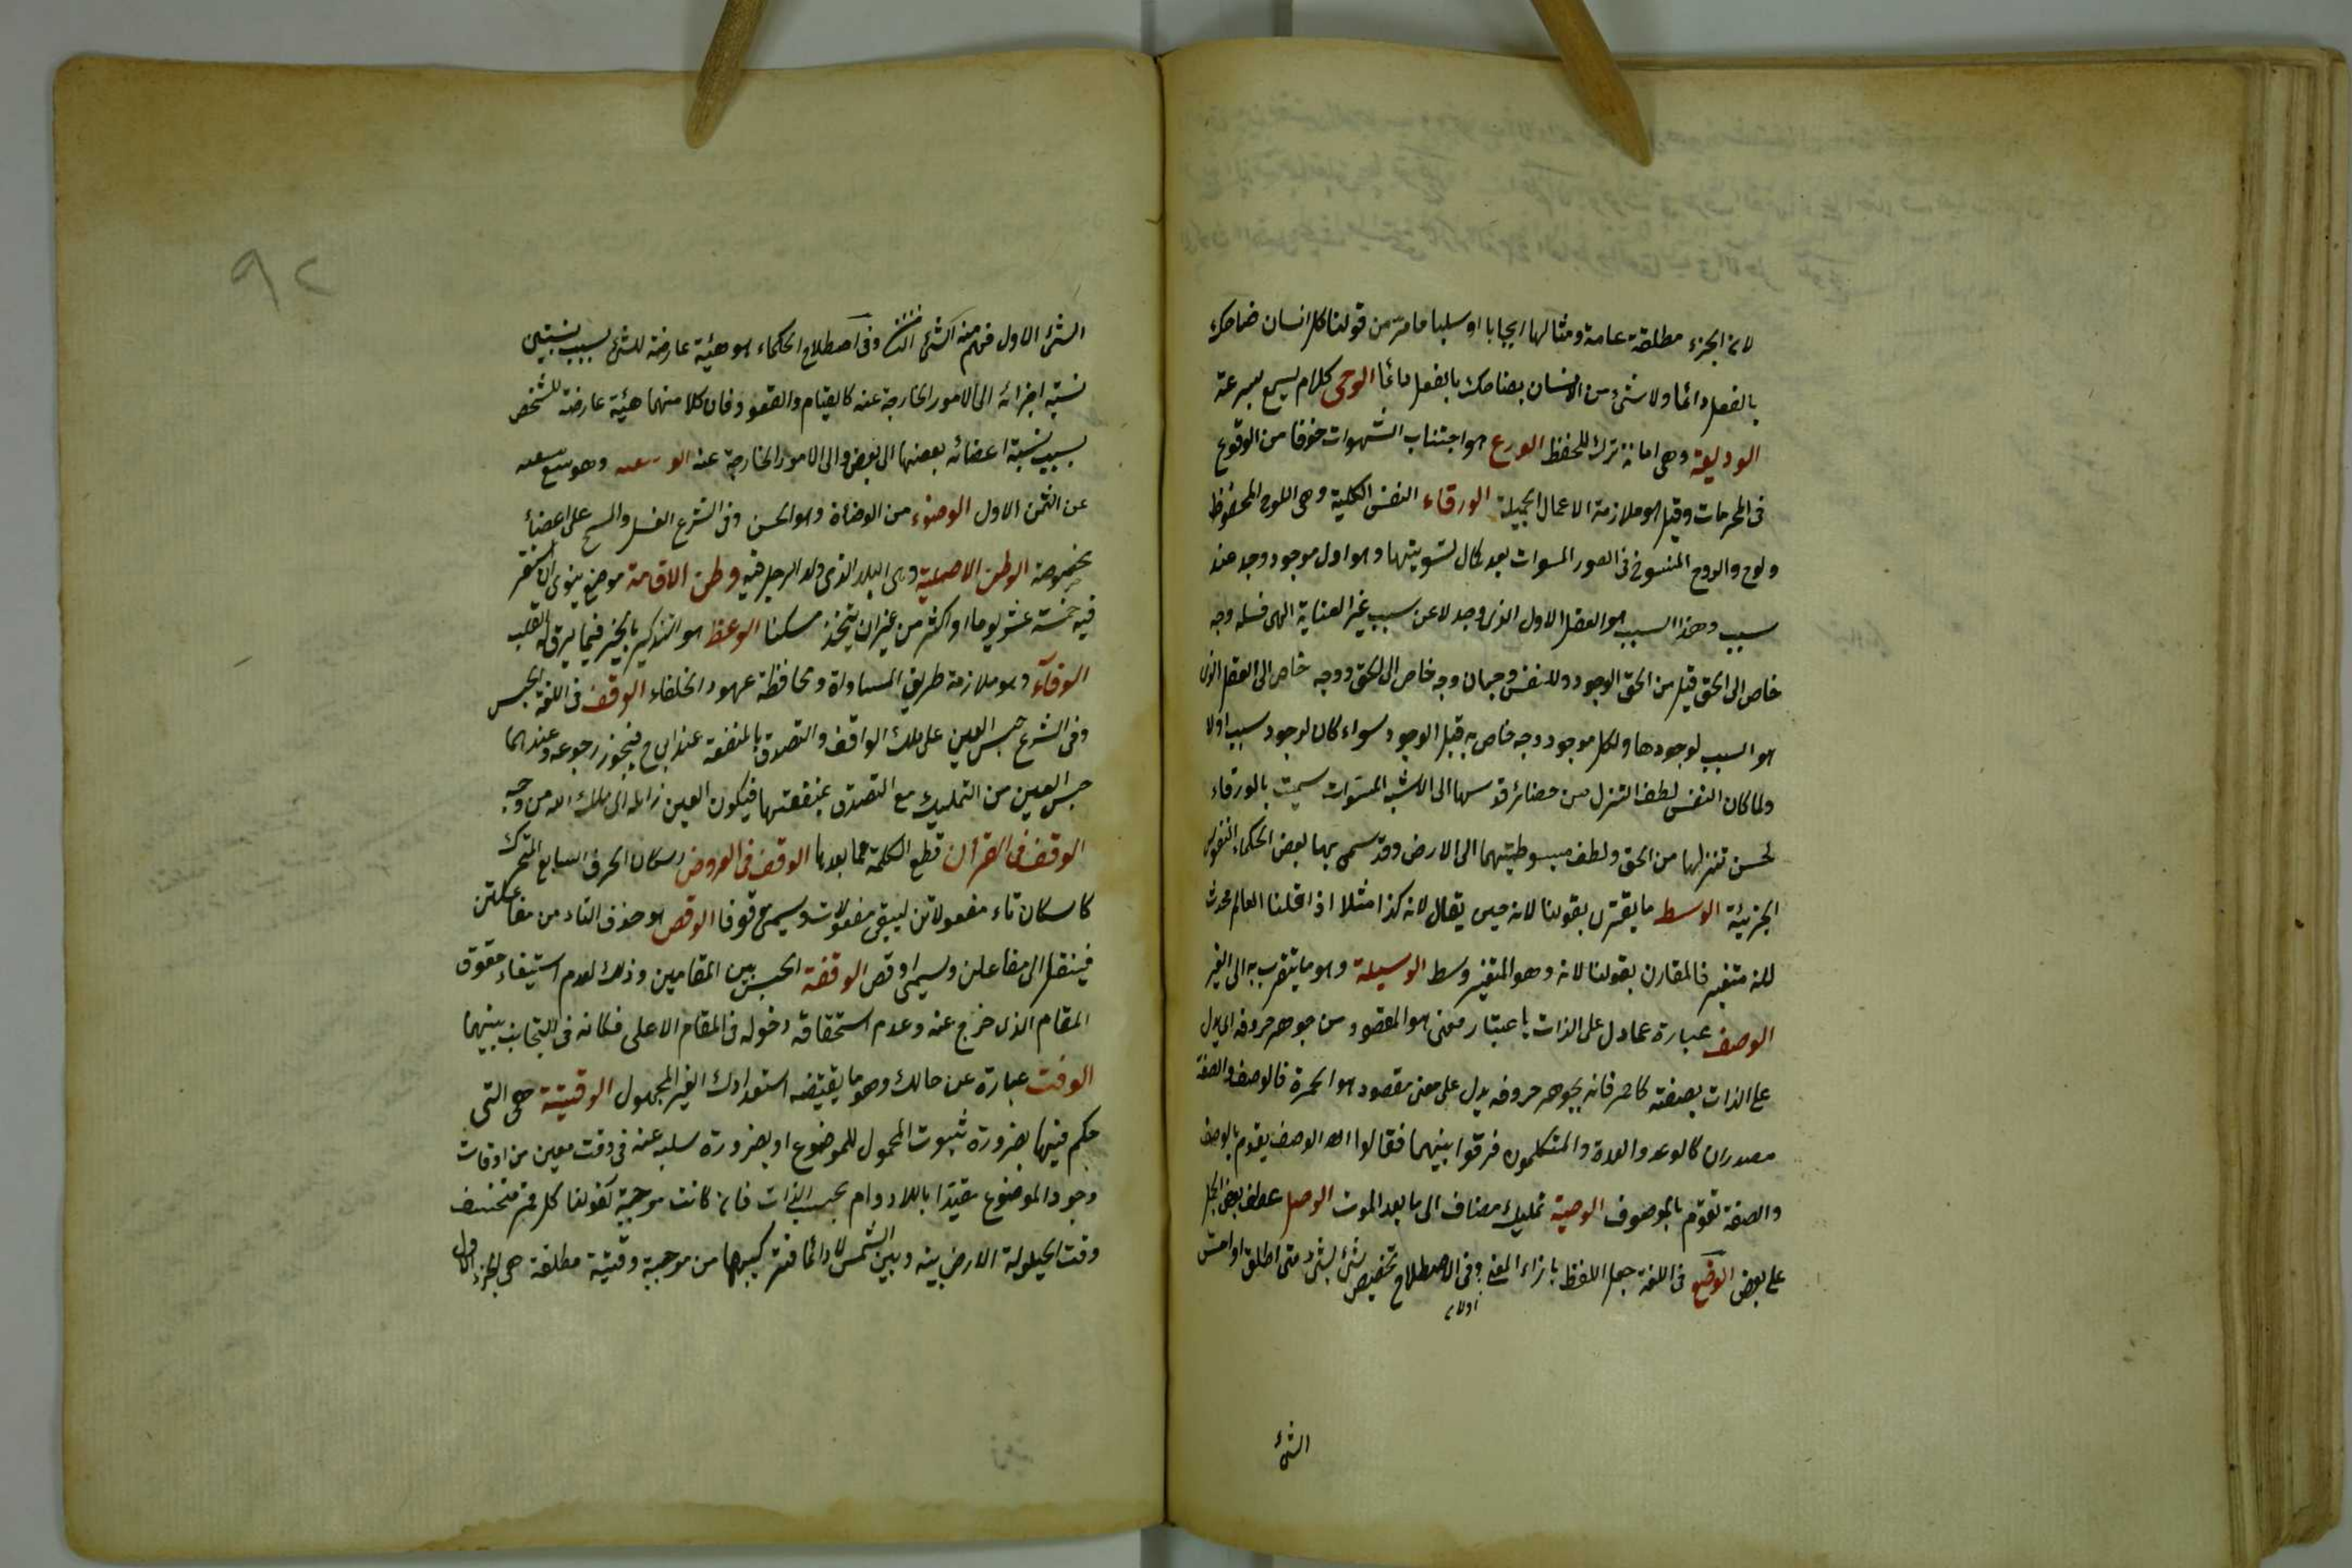 لان الجزء مطلقة عامة ومثالها ايجابا او سلبا ما مر من قولنا كل انسان ضاحك
بالفعل دائما ولا شئ من الانسان بضاحك بالفعل دائما الوحى كلام يسمع بسرعة
الوديعة وهى امانة ترك للحفظ الورع هو اجتناب الشهوات خوفا من الوقوع
فى المحرمات وقيل هو ملازمة الاعمال الجميلة الورقاء النفس الكلية وهى اللوح المحفوظ
ولوح والروح المنفوخ فى الصور المسوات بعد كمال تسويتها وهو اول موجود وجد عند
سبب وهذا السبب هو العقل الاول الذى وجد لا عن سبب غير العناية الهى فله وجه
خاص الى الحق قبل من الحق الوجود وللنفس وجهان وجه خاص الى الحق ووجه خاص الى العقل الذى
هو السبب لوجودها ولكل موجود وجه خاص به قبل الوجود سواء كان لوجود سبب اولا
ولما كان النفس لطف التنزل من حضائر قدسها الى الاشبه المسوات سميت بالورقاء
لحسن تنزلها من الحق ولطف مبسوطيتهما الى الارض وقد سمى بها بعض الحكماء النفوس
الجزئية الوسط ما يقترن بقولنا لانه حين يقال لانه كذا مثلا اذا قلنا العالم محدث
لانه متغير فالمقارن بقولنا لانه وهو المتغير وسط الوسيلة وهو ما يتقرب به الى الغير
الوصف عبارة عما دل على الذات باعتبار معنى هو المقصود من جوهر حروفه اى يدل
على الذات بصفته كاحمر فانه بجوهر حروفه يدل على معنى مقصود هو الحمرة فالوصف والصفة
مصدران كالوعد والعدة والمتكلمون فرقوا بينهما فقالوا الوصف يقوم بالوصف
والصفة تقوم بالموصوف الوصية تمليك مضاف الى ما بعد الموت الوصل عطف بعض الجمل
على بعض الوضع فى اللغة جعل اللفظ بازاء المعنى وفى الاصطلاح تخصيص شئ بشئ متى اطلق او احس
الشئ
٩٢
الشئ الاول فهم منه الشئ الثانى وفى اصطلاح الحكماء هو هيئة عارضة للشئ بسبب نسبتين
نسبة اجزائه الى الامور الخارجة عنه كالقيام والقعود فان كلا منهما هيئة عارضة للشخص
بسبب نسبة اعضائه بعضها الى بعض والى الامور الخارجة عنه وهو بيع
عن الثمن الاول الوضوء من الوضاة وهو الحسن وفى الشرع الغسل والمسح على اعضاء
مخصوصة الوطن الاصلية وهى البلد الذى ولد الرجل فيه وطن الاقامة موضع ينوى ان يستقر
فيه خمسة عشر يوما او اكثر من غير ان يتخذ مسكنا الوعظ هو التذكير بالخير فيما يرق له القلب
الوفاء وهو ملازمة طريق المساواة ومحافظة عهود الخلفاء الوقف فى اللغة الحبس
وفى الشرع حبس العين على ملك الواقف والتصدق بالمنفعة عند ابى ح فيجوز رجوعه وعندهما
حبس العين من التمليك مع التصدق بمنفعتها فيكون العين زائلة الى ملك الله من وجه
الوقف فى القرآن قطع الكلمة عما بعدها الوقف فى العروض اسكان الحرف السابع المتحرك
كاسكان تاء مفعولاتن ليبقى مفعولات ويسمى موقوفا الوقص هو حذف التاء من مفاعلتن
فينقل الى مفاعلن ويسمى اوقص الوقفة الحبس بين المقامين وذلك لعدم استيفاء حقوق
المقام الذى خرج عنه وعدم استحقاقه دخوله فى المقام الاعلى فكانه فى التجاذب بينهما
الوقت عبارة عن حالك وهو ما يقتضيه استعدادك الغير المجهول الوقتية هى التى
حكم فيها بضرورة ثبوت المحمول للموضوع او بضرورة سلبه عنه فى وقت معين من اوقات
وجود الموضوع مقيدا باللادوام بحسب الذات فان كانت موجبة كقولنا كل قمر منخسف
وقت الحيلولة الارض بينه وبين الشمس لا دائما فتركيبها من موجبة وقتية مطلقة هى الجزء الاول